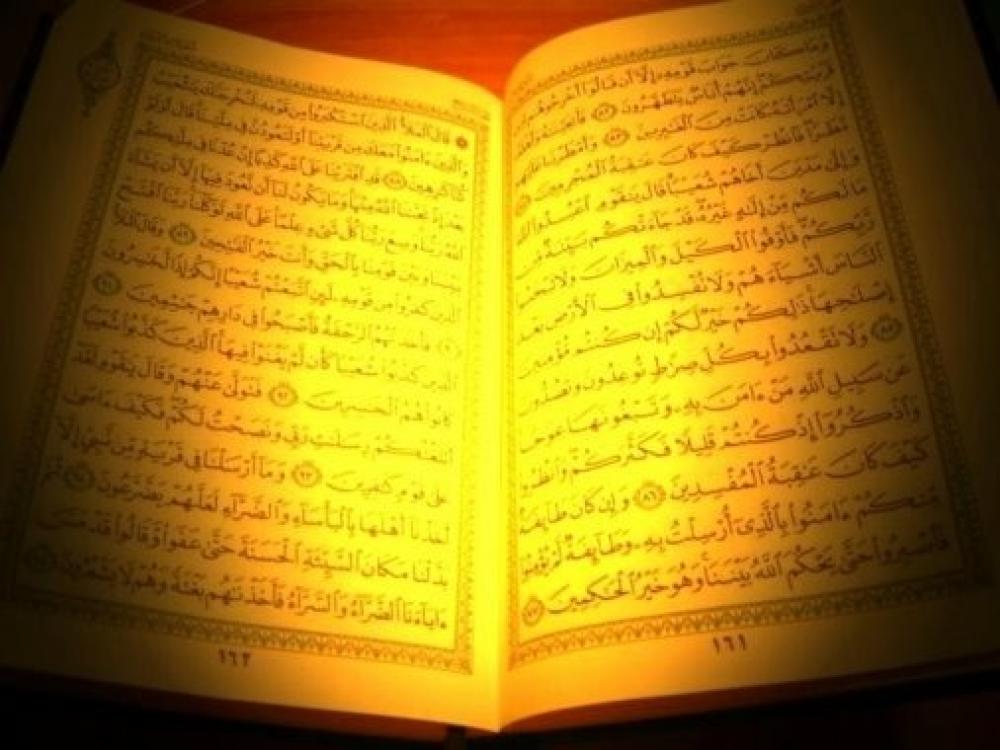 وَمَا كَانَ جَوَابَ قَوْمِهِۦٓ إِلَّآ أَن قَالُوٓا۟ أَخْرِجُوهُم مِّن
قَرْيَتِكُمْ إِنَّهُمْ أُنَاسٌ يَتَطَهَّرُونَ ٨٢ فَأَنجَيْنَٰهُ وَأَهْلَهُۥٓ
إِلَّا ٱمْرَأَتَهُۥ كَانَتْ مِنَ ٱلْغَٰبِرِينَ ٨٣ وَأَمْطَرْنَا عَلَيْهِم
مَّطَرًا فَٱنظُرْ كَيْفَ كَانَ عَٰقِبَةُ ٱلْمُجْرِمِينَ ٨٤
وَإِلَىٰ مَدْيَنَ أَخَاهُمْ شُعَيْبًا قَالَ يَٰقَوْمِ ٱعْبُدُوا۟ ٱللَّهَ
مَا لَكُم مِّنْ إِلَٰهٍ غَيْرُهُۥ قَدْ جَآءَتْكُم بَيِّنَةٌ مِّن
رَّبِّكُمْ فَأَوْفُوا۟ ٱلْكَيْلَ وَٱلْمِيزَانَ وَلَا تَبْخَسُوا۟
ٱلنَّاسَ أَشْيَآءَهُمْ وَلَا تُفْسِدُوا۟ فِى ٱلْأَرْضِ بَعْدَ
إِصْلَٰحِهَا ذَٰلِكُمْ خَيْرٌ لَّكُمْ إِن كُنتُم مُّؤْمِنِينَ
٨٥ وَلَا تَقْعُدُوا۟ بِكُلِّ صِرَٰطٍ تُوعِدُونَ وَتَصُدُّونَ
عَن سَبِيلِ ٱللَّهِ مَنْ ءَامَنَ بِهِۦ وَتَبْغُونَهَا عِوَجًا
وَٱذْكُرُوٓا۟ إِذْ كُنتُمْ قَلِيلًا فَكَثَّرَكُمْ وَٱنظُرُوا۟
كَيْفَ كَانَ عَٰقِبَةُ ٱلْمُفْسِدِينَ ٨٦ وَإِن كَانَ طَآئِفَةٌ
مِّنكُمْ ءَامَنُوا۟ بِٱلَّذِىٓ أُرْسِلْتُ بِهِۦ وَطَآئِفَةٌ لَّمْ يُؤْمِنُوا۟
فَٱصْبِرُوا۟ حَتَّىٰ يَحْكُمَ ٱللَّهُ بَيْنَنَا وَهُوَ خَيْرُ ٱلْحَٰكِمِينَ ٨٧
١٦١
قَالَ ٱلْمَلَأُ ٱلَّذِينَ ٱسْتَكْبَرُوا۟ مِن قَوْمِهِۦ لَنُخْرِجَنَّكَ يَٰشُعَيْبُ
وَٱلَّذِينَ ءَامَنُوا۟ مَعَكَ مِن قَرْيَتِنَآ أَوْ لَتَعُودُنَّ فِى مِلَّتِنَا قَالَ أَوَلَوْ
كُنَّا كَٰرِهِينَ ٨٨ قَدِ ٱفْتَرَيْنَا عَلَى ٱللَّهِ كَذِبًا إِنْ عُدْنَا فِى مِلَّتِكُم
بَعْدَ إِذْ نَجَّىٰنَا ٱللَّهُ مِنْهَا وَمَا يَكُونُ لَنَآ أَن نَّعُودَ فِيهَآ إِلَّآ أَن يَشَآءَ
ٱللَّهُ رَبُّنَا وَسِعَ رَبُّنَا كُلَّ شَىْءٍ عِلْمًا عَلَى ٱللَّهِ تَوَكَّلْنَا رَبَّنَا ٱفْتَحْ
بَيْنَنَا وَبَيْنَ قَوْمِنَا بِٱلْحَقِّ وَأَنتَ خَيْرُ ٱلْفَٰتِحِينَ ٨٩ وَقَالَ ٱلْمَلَأُ
ٱلَّذِينَ كَفَرُوا۟ مِن قَوْمِهِۦ لَئِنِ ٱتَّبَعْتُمْ شُعَيْبًا إِنَّكُمْ إِذًا لَّخَٰسِرُونَ
٩٠ فَأَخَذَتْهُمُ ٱلرَّجْفَةُ فَأَصْبَحُوا۟ فِى دَارِهِمْ جَٰثِمِينَ ٩١
ٱلَّذِينَ كَذَّبُوا۟ شُعَيْبًا كَأَن لَّمْ يَغْنَوْا۟ فِيهَا ٱلَّذِينَ كَذَّبُوا۟ شُعَيْبًا
كَانُوا۟ هُمُ ٱلْخَٰسِرِينَ ٩٢ فَتَوَلَّىٰ عَنْهُمْ وَقَالَ يَٰقَوْمِ لَقَدْ
أَبْلَغْتُكُمْ رِسَٰلَٰتِ رَبِّى وَنَصَحْتُ لَكُمْ فَكَيْفَ ءَاسَىٰ
عَلَىٰ قَوْمٍ كَٰفِرِينَ ٩٣ وَمَآ أَرْسَلْنَا فِى قَرْيَةٍ مِّن نَّبِىٍّ إِلَّآ
أَخَذْنَآ أَهْلَهَا بِٱلْبَأْسَآءِ وَٱلضَّرَّآءِ لَعَلَّهُمْ يَضَّرَّعُونَ ٩٤ ثُمَّ
بَدَّلْنَا مَكَانَ ٱلسَّيِّئَةِ ٱلْحَسَنَةَ حَتَّىٰ عَفَوا۟ وَّقَالُوا۟ قَدْ مَسَّ
ءَابَآءَنَا ٱلضَّرَّآءُ وَٱلسَّرَّآءُ فَأَخَذْنَٰهُم بَغْتَةً وَهُمْ لَا يَشْعُرُونَ ٩٥
١٦٢